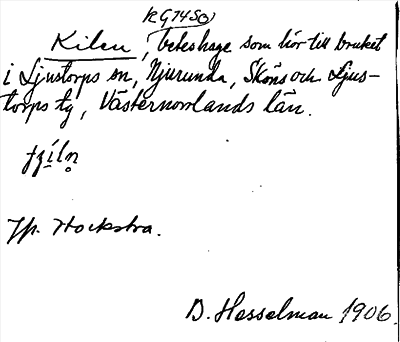 Kilen, beteshage som hör till bruket
i Ljustorps sn, Njurunda, Sköns och Ljus-
torps tg, Västernorrlands län.
Hp. Hockstra.
B. Hesselman 1906.